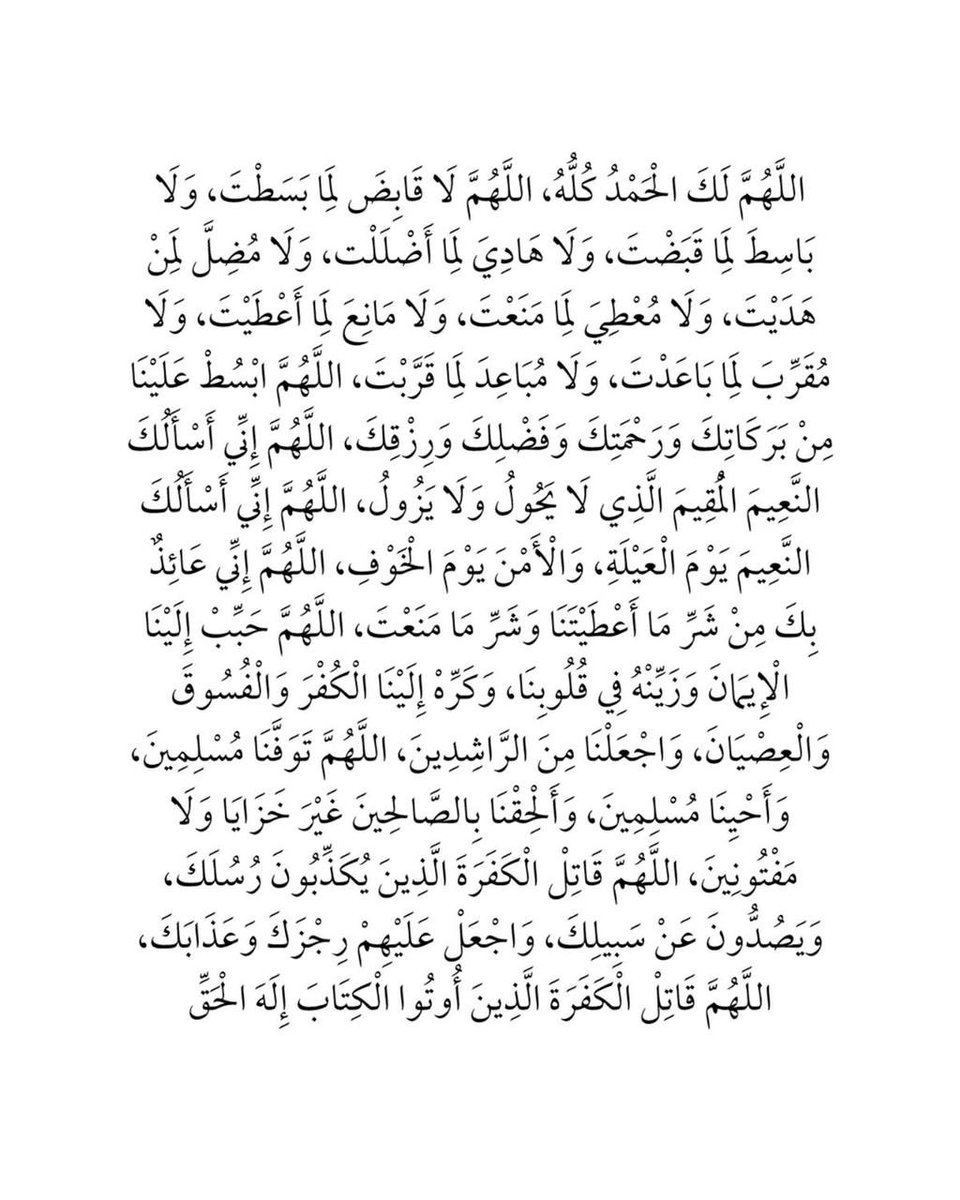 اللَّهُمَّ لَكَ الْحَمْدُ كُلُّهُ، اللَّهُمَّ لَا قَابِضَ لِمَا بَسَطْتَ، وَلَا
بَاسِطَ لِمَا قَبَضْتَ، وَلَا هَادِيَ لِمَا أَضْلَلْت، وَلَا مُضِلَّ لِمَنْ
هَدَيْتَ، وَلَا مُعْطِيَ لِمَا مَنَعْتَ، وَلَا مَانِعَ لِمَا أَعْطَيْتَ، وَلَا
مُقَرِّبَ لِمَا بَاعَدْتَ، وَلَا مُبَاعِدَ لِمَا قَرَّبْتَ، اللَّهُمَّ ابْسُطْ عَلَيْنَا
مِنْ بَرَكَاتِكَ وَرَحْمَتِكَ وَفَضْلِكَ وَرِزْقِكَ، اللَّهُمَّ إِنِّي أَسْأَلُكَ
النَّعِيمَ الْمُقِيمَ الَّذِي لَا يَحُولُ وَلَا يَزُولُ، اللَّهُمَّ إِنِّي أَسْأَلُكَ
النَّعِيمَ يَوْمَ الْعَيْلَةِ، وَالْأَمْنَ يَوْمَ الْخَوْفِ، اللَّهُمَّ إِنِّي عَائِذٌ
بِكَ مِنْ شَرِّ مَا أَعْطَيْتَنَا وَشَرِّ مَا مَنَعْتَ، اللَّهُمَّ حَبِّبْ إِلَيْنَا
الْإِيمَانَ وَزَيِّنْهُ فِي قُلُوبِنَا، وَكَرِّهْ إِلَيْنَا الْكُفْرَ وَالْفُسُوقَ
وَالْعِصْيَانَ، وَاجْعَلْنَا مِنَ الرَّاشِدِينَ، اللَّهُمَّ تَوَفَّنَا مُسْلِمِينَ،
وَأَحْيِنَا مُسْلِمِينَ، وَأَلْحِقْنَا بِالصَّالِحِينَ غَيْرَ خَزَايَا وَلَا
مَفْتُونِينَ، اللَّهُمَّ قَاتِلْ الْكَفَرَةَ الَّذِينَ يُكَذِّبُونَ رُسُلَكَ،
وَيَصُدُّونَ عَنْ سَبِيلِكَ، وَاجْعَلْ عَلَيْهِمْ رِجْزَكَ وَعَذَابَكَ،
اللَّهُمَّ قَاتِلْ الْكَفَرَةَ الَّذِينَ أُوتُوا الْكِتَابَ إِلَهَ الْحَقِّ